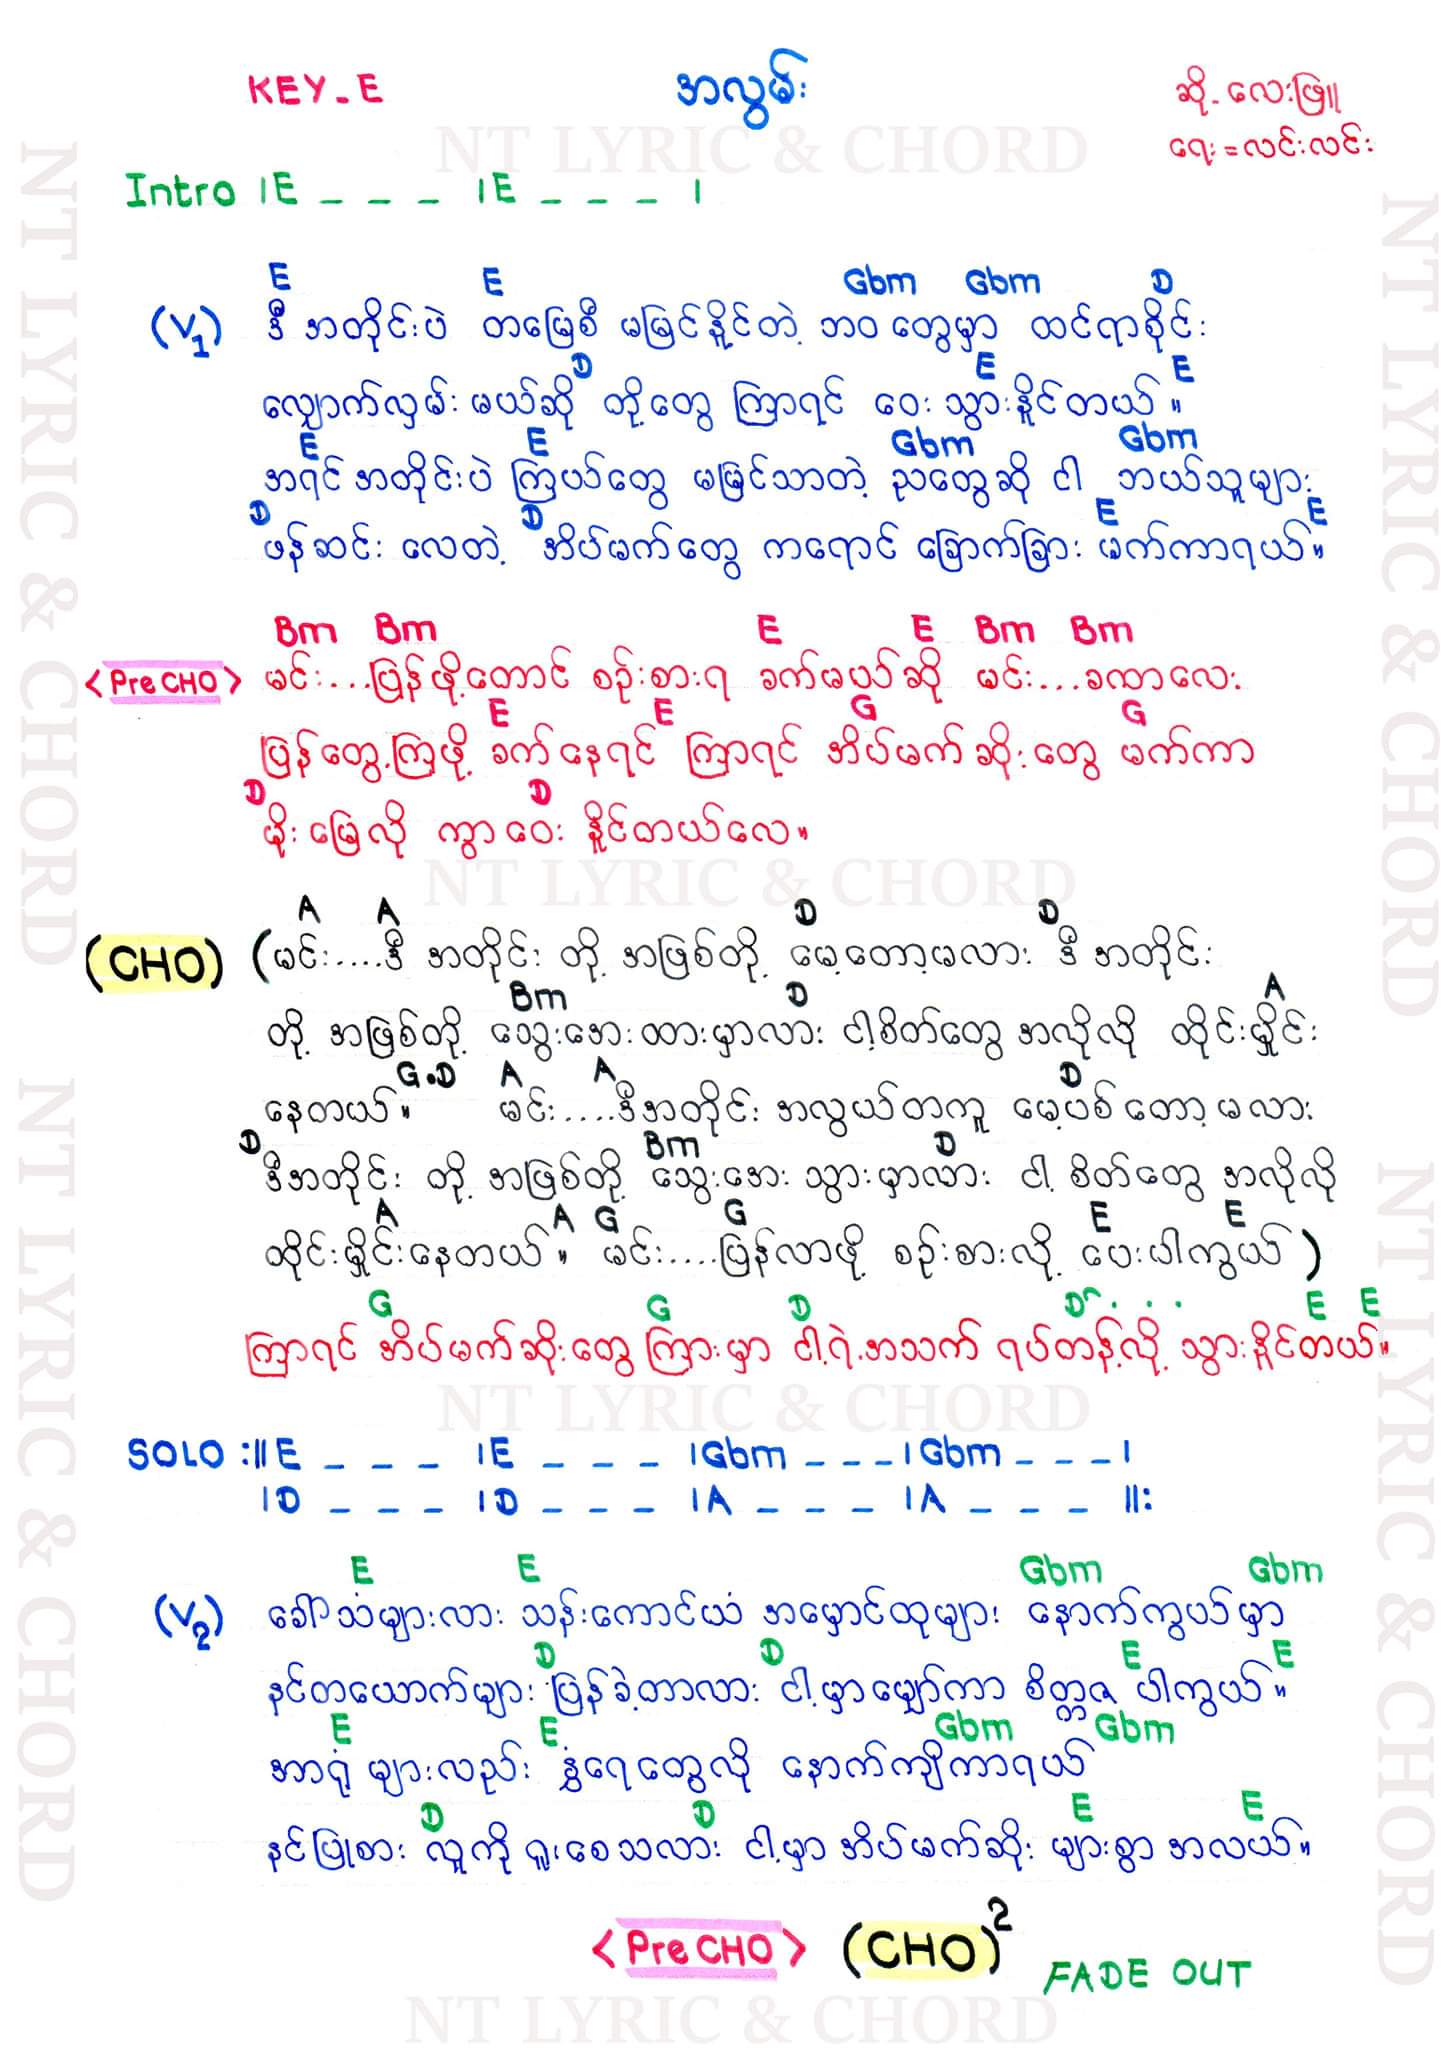 KEY - E
အလွမ်း
ဆို - လေးဖြူ
ရေး = လင်းလင်း
NT LYRIC & CHORD
Intro |E _ _ _ |E _ _ _ |
E E Gbm Gbm D
(V1) ဒီ အတိုင်းပဲ တမြေစီ မမြင်နိူင်တဲ့ ဘဝ တွေမှာ ထင်ရာစိုင်း
D E E
လျှောက်လှမ်း မယ်ဆို တို့တွေ ကြာရင် ဝေး သွားနိူင်တယ်။
E E Gbm Gbm
အရင် အတိုင်းပဲ ကြယ်တွေ မမြင်သာတဲ့ ညတွေဆို ငါ ဘယ်သူများ
D D E E
ဖန်ဆင်း လေတဲ့ အိပ်မက်တွေ ကရောင် ခြောက်ခြား မက်ကာရယ်။
Bm Bm E E Bm Bm
<Pre CHO> မင်း...ပြန်ဖို့တောင် စဉ်းစားရ ခက်မယ်ဆို မင်း...ခဏလေး
E E G G
ပြန်တွေ့ကြဖို့ ခက်နေရင် ကြာရင် အိပ်မက်ဆိုးတွေ မက်ကာ
D D
မိုးမြေလို ကွာဝေး နိူင်တယ်လေ။
NT LYRIC & CHORD
A A D D
(CHO) (မင်း....ဒီ အတိုင်း တို့ အဖြစ်တို့ မေ့တော့မလား ဒီ အတိုင်း
Bm D A
တို့ အဖြစ်တို့ သွေးအေးထားမှာလား ငါ့စိတ်တွေ အလိုလို ထိုင်းမှိုင်း
G.D A A D
နေတယ်။ မင်း....ဒီအတိုင်း အလွယ်တကူ မေ့ပစ်တော့မလား
D Bm D
ဒီအတိုင်း တို့ အဖြစ်တို့ သွေးအေး သွားမှာလား ငါ့ စိတ်တွေ အလိုလို
A A G G E E
ထိုင်းမှိုင်းနေတယ်။ မင်း....ပြန်လာဖို့ စဉ်းစားလို့ ပေးပါကွယ်)
G G D D^ . . . E E
ကြာရင် အိပ်မက်ဆိုးတွေ ကြားမှာ ငါ့ရဲ့အသက် ရပ်တန့်လို့ သွားနိူင်တယ်။
NT LYRIC & CHORD
SOLO :||E _ _ _ |E _ _ _ |Gbm _ _ _ |Gbm _ _ _ |
|D _ _ _ |D _ _ _ |A _ _ _ |A _ _ _ ||:
E E Gbm Gbm
(V2) ခေါ်သံများလား သန်းကောင်ယံ အမှောင်ထုများ နောက်ကွယ်မှာ
D D E E
နင်တယောက်များ ပြန်ခဲ့တာလား ငါ့မှာမျှော်ကာ စိတ္တဇ ပါကွယ်။
E E Gbm Gbm
အာရုံ များလည်း နွံရေတွေလို နောက်ကျိကာရယ်
D D E E
နင်ပြုစား လူကို ရူးစေသလား ငါ့မှာ အိပ်မက်ဆိုး များစွာ အလယ်။
<Pre CHO> (CHO)2 FADE OUT
NT LYRIC & CHORD
NT LYRIC & CHORD
NT LYRIC & CHORD
NT LYRIC & CHORD
NT LYRIC & CHORD